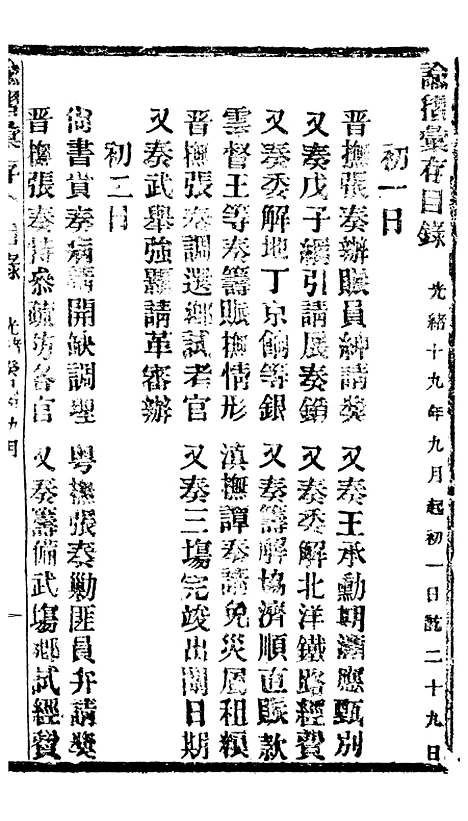 諭摺彙存目錄 光緒十九年九月起初一日訖二十九日
初一日
晋撫張奏辦賑員紳請獎 又奏王承勳期滿應甄別
又奏戊子綱引請展奏銷 又奏委解北洋鐵路經費
又奏委解地丁京餉等銀 又奏籌解協濟順直賑款
雲督王等奏籌賑撫情形 滇撫譚奏請免災屬租糧
晋撫張奏調選鄉試考官 又奏三塲完竣出闈日期
又奏武舉強 請革審辦
初二日
尙書貴奏病請開缺調理 粤撫張奏勦匪員弁請獎
晋撫張奏特參疏防各官 又奏籌備武塲鄉試經費
諭摺彙存 目錄 光緒 九月 一